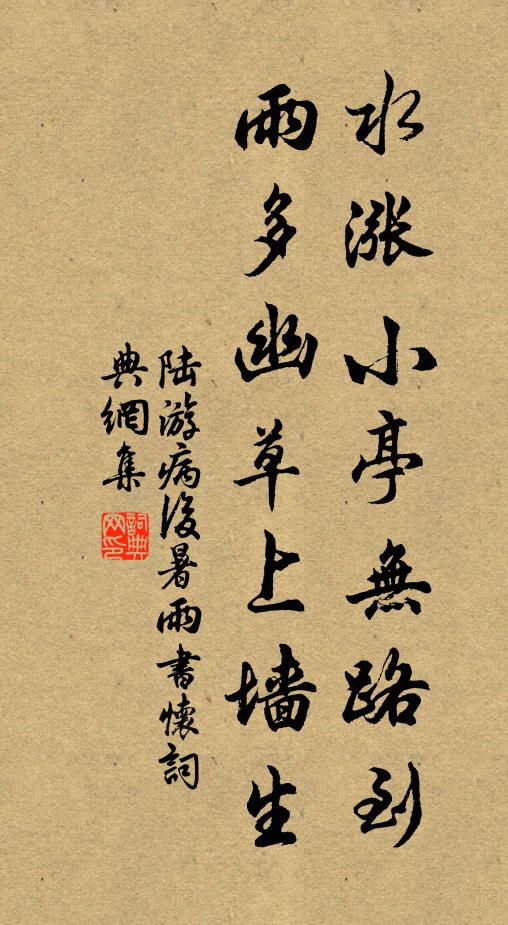 水漲小亭無路到
雨多幽草上墻生
陆游病後暑雨書懷詞
典網集
詞典
网印